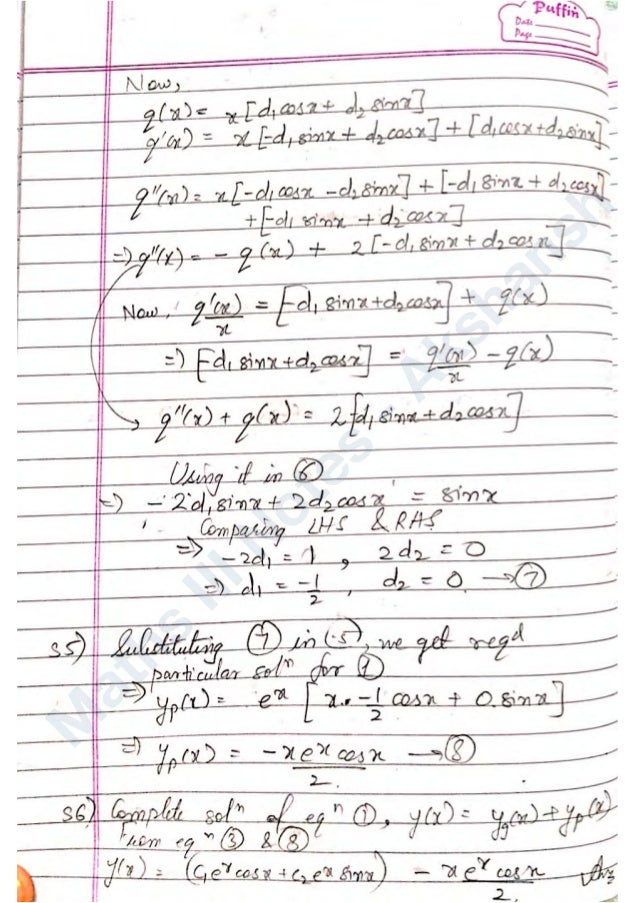 Puffin
Date
Page
Now,
q(x) = x[d₁cosx + d₂sinx]
q'(x) = x[-d₁sinx + d₂cosx] + [d₁cosx+d₂sinx]
q''(x) = x[-d₁cosx - d₂sinx] + [-d₁sinx + d₂cosx]
+[-d₁ sinx + d₂ cosx]
=> q''(x) = - q(x) + 2[-d₁sinx + d₂cosx]
Now, q'(x)/x = [-d₁ sinx+d₂cosx] + q(x)
=> [-d₁sinx+d₂cosx] = q'(x)/x - q(x)
q''(x) + q(x) = 2[-d₁sinx+d₂cosx]
Using it in ⑥
=> -2d₁sinx + 2d₂cosx = sinx
Comparing LHS & RHS
=> -2d₁ = 1 , 2d₂ = 0
=> d₁ = -1/2 , d₂ = 0 → ⑦
S5) Substituting ⑦ in (5), we get reqd
particular solⁿ for ①
=> yp(x) = eˣ [x. -1/2 cosx + 0.sinx]
=> yp(x) = -xeˣcosx/2. → ⑧
S6) Complete solⁿ of eqⁿ ①, y(x) = yg(x) + yp(x)
From eqⁿ ③ & ⑧
y(x) = (c₁eˣcosx + c₂eˣ sinx) - xeˣcosx/2. Ans
Maths III Notes Akshansh